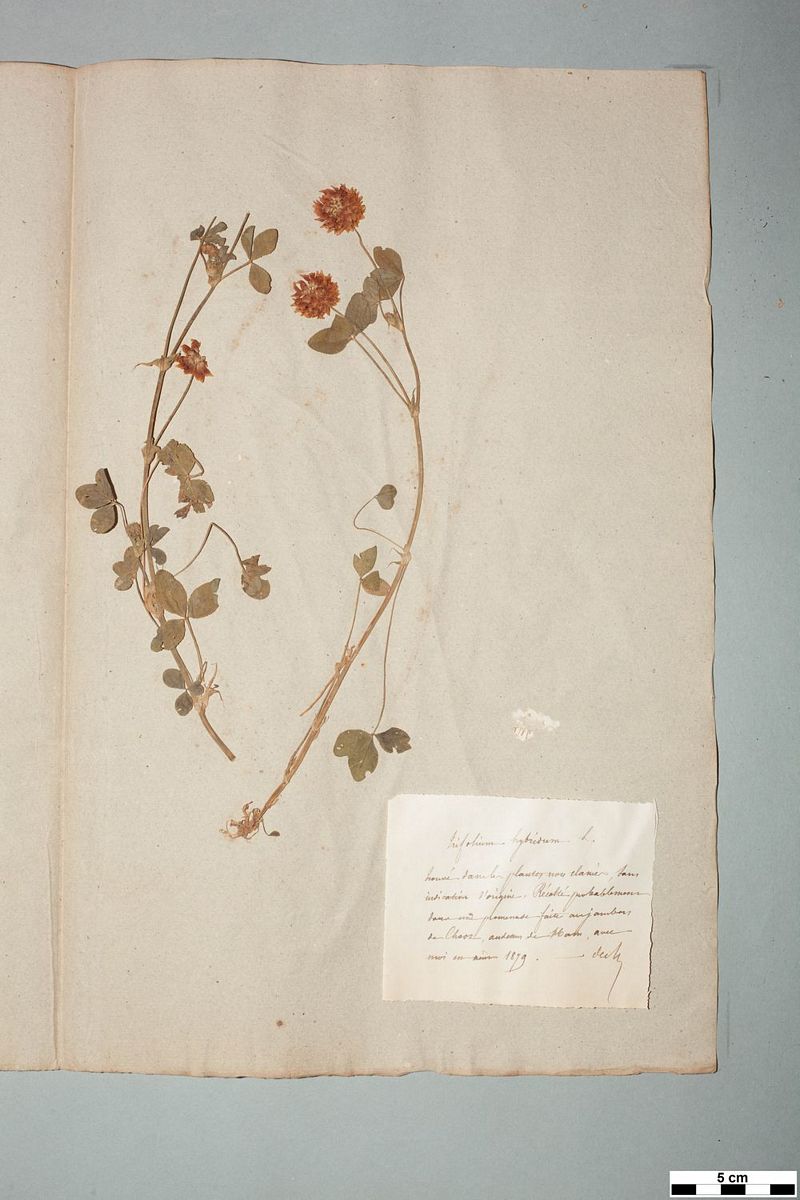 trifolium hybridum L.
trouvé dans les plantes non classées, sans
indication d'origine. Récolté probablement
dans une promenade faite aux jambons
de Chooz, au dessus de Ham, avec
moi en 1879. —
5 cm